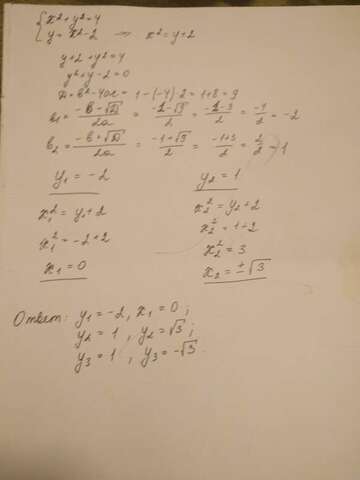 { x²+y²=4
y = x²-2 => x²=y+2
y+2+y²=4
y²+y-2=0
D=b²-4ac = 1-(-4)·2=1+8=9
b₁ = (-b-√D)/2a = (-1-√9)/2 = (-1-3)/2 = -4/2 = -2
b₂ = (-b+√D)/2a = (-1+√9)/2 = (-1+3)/2 = 2/2 = 1
y₁ = -2
x₁² = y₁+2
x₁² = -2+2
x₁ = 0
y₂ = 1
x₂² = y₂+2
x₂² = 1+2
x₂² = 3
x₂ = ±√3
Ответ: y₁ = -2, x₁ = 0;
y₂ = 1, y₂ = √3;
y₃ = 1, y₃ = -√3.